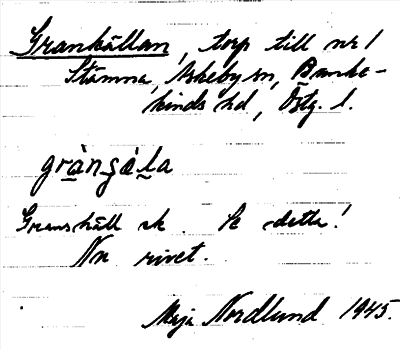 Grankällan, torp till nr 1
Stämna, Askeby sn, Banke-
kinds hd, Östg. l.
gràngàla
Granskäll ek. Se detta!
Nu rivet.
Maja Nordlund 1945.